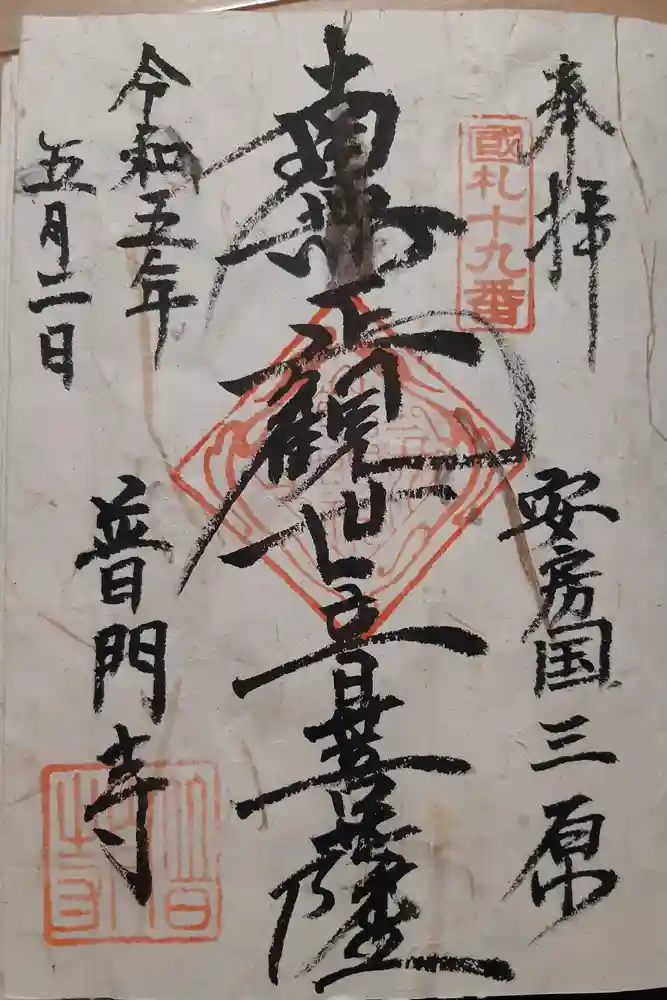 奉拝
安房国三原
國札十九番
南無正観世音菩薩
令和五年
五月二日
普門寺